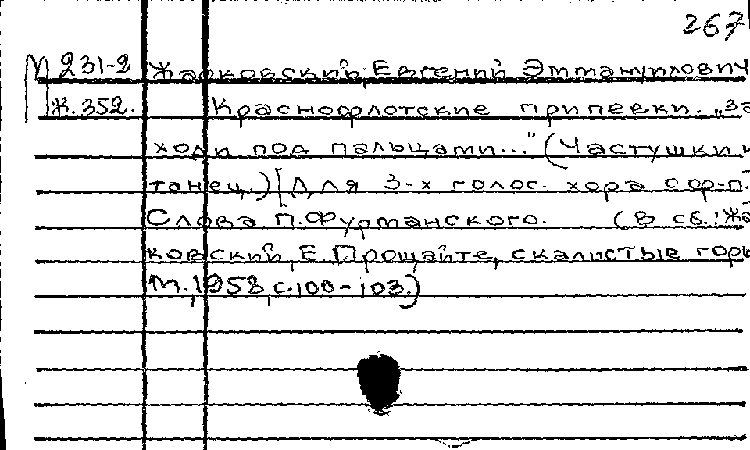 267
М 231-2 Жарковский, Евгений Эммануилович
Ж.352. Краснофлотские припевки. „За
ходи под пальцами..." (Частушки и
танец.) [Для 3-х голос. хора с ф-п.
Слова П.Фурманского. (В сб.: Жа
ковский, Е. Прощайте, скалистые горы
М., 1958, с.100-103.)